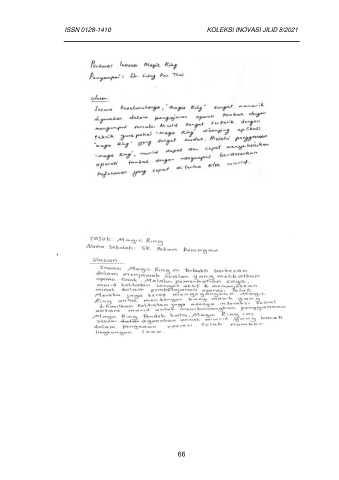 ISSN 0128-1410 KOLEKSI INOVASI JILID 8/2021
Perkara: Inovasi Magic Ring
Penyampai: Dr. Ling
Ulasan.
Secara keseluruhannya, "Magic Ring" sangat menarik
digunakan dalam pengajaran operasi tambah dengan
mengumpul semula. Murid sangat tertarik dengan
teknik guru pakai "Magic Ring" aplikasi
"Magic Ring" yang sangat mudah. Melalui penggunaan
"magic Ring", murid dapat dan cepat
operasi tambah dengan mengumpul berdasarkan
yang cepat diterima oleh murid.
TAJUK: Magic Ring
Nama Sekolah: SK Pekan Keningau
Ulasan
Inovasi Magic Ring ni terbukti berkesan
dalam menjawab soalan yang melibatkan
operasi tolak. Melalui pemerhatian saya,
murid kelihatan sangat aktif & menunjukkan
minat dalam pembelajaran operasi tolak.
Mereka juga kerap Magic
Ring untuk mendengar bunyi yang
dihasilkan. Kelihatan juga adanya interaksi
antara murid untuk membincangkan penggunaan
Magic Ring. Pendek kata, Magic Ring ini
sesuai digunakan untuk murid yang lemah
dalam pengiraan operasi tolak nombor
lingkungan 1000.
66